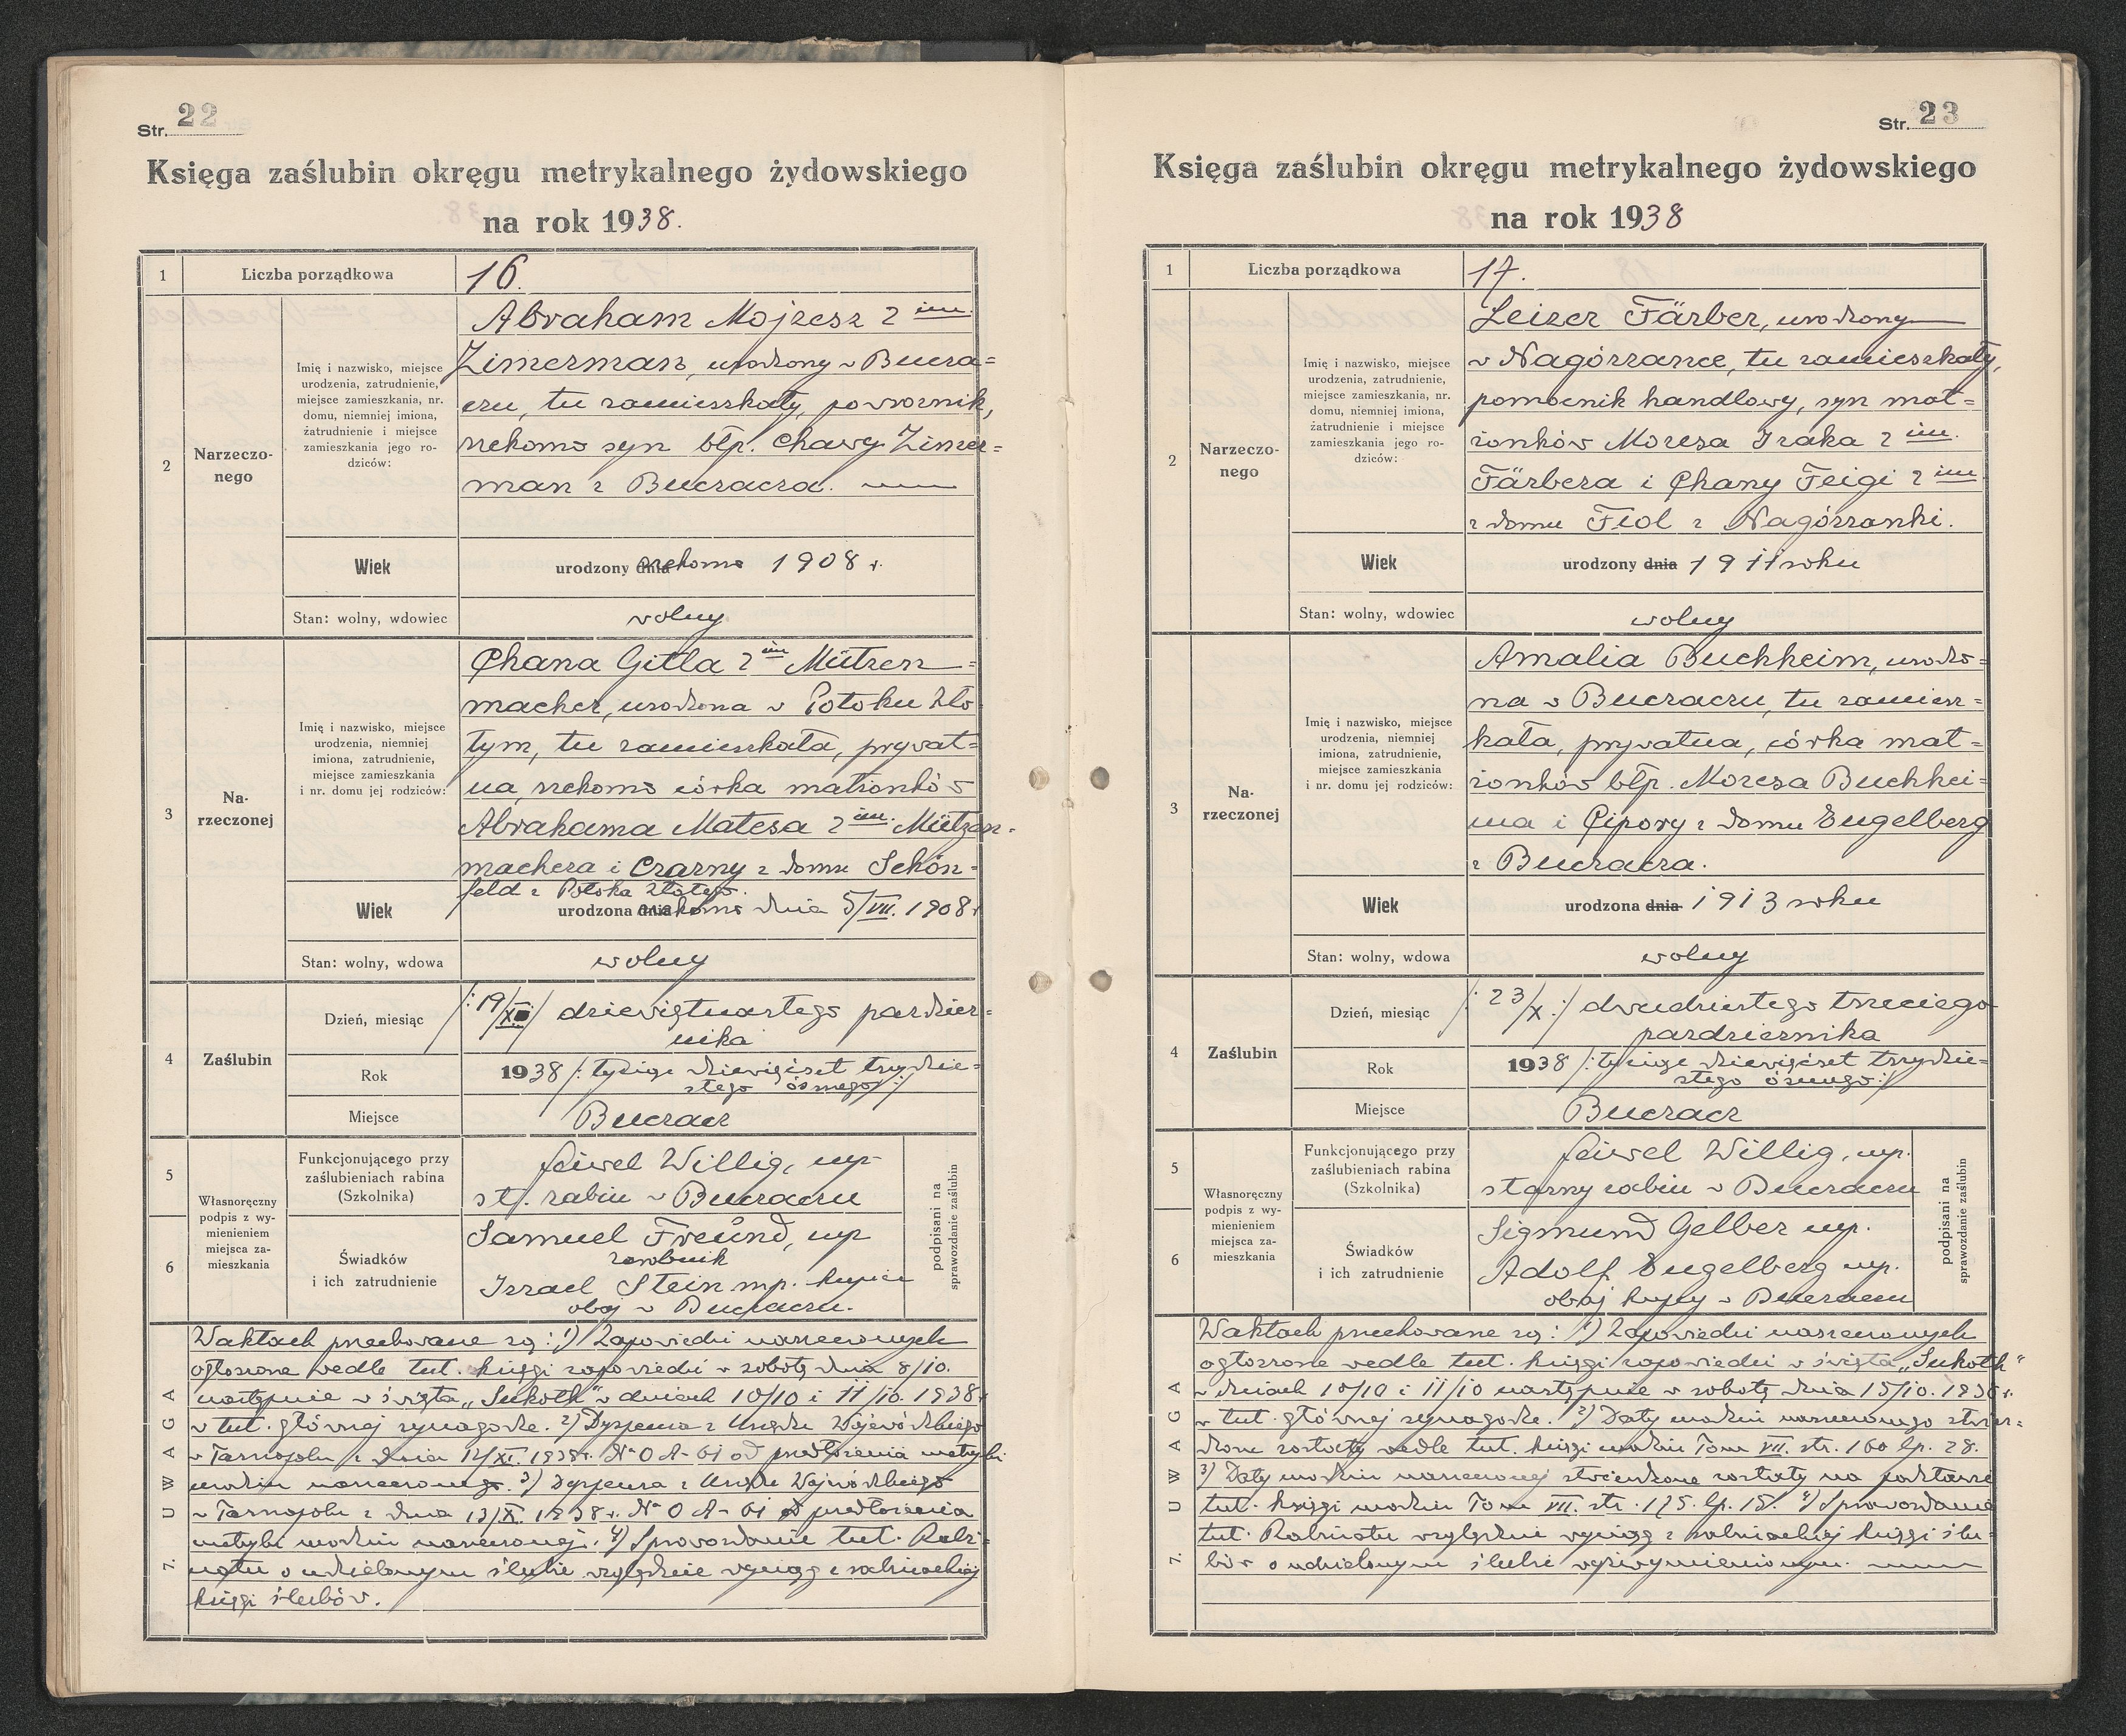 Str. 22
Księga zaślubin okręgu metrykalnego żydowskiego
na rok 1938.
1 Liczba porządkowa 16.
2 Narzeczo-
nego
Imię i nazwisko, miejsce
urodzenia, zatrudnienie,
miejsce zamieszkania, nr.
domu, niemniej imiona,
zatrudnienie i miejsce
zamieszkania jego ro-
dziców:
Abraham Mojzesz 2 im.
Zimerman, urodzony w Bucza=
czu, tu zamieszkały, powroznik,
rzekomo syn błp. Chawy Zimer=
man z Buczacza.
Wiek urodzony dnia rzekomo 1908 r.
Stan: wolny, wdowiec wolny
3 Na-
rzeczonej
Imię i nazwisko, miejsce
urodzenia, niemniej
imiona, zatrudnienie,
miejsce zamieszkania
i nr. domu jej rodziców:
Chana Gitla 2 im Mützen=
macher, urodzona w Potoku Zło
tym, tu zamieszkała, prywat=
na, rzekomo córka małżonków
Abrahama Matesa 2 im. Mützen=
machera i Czarny z domu Schön=
feld z Potoka Złotego.
Wiek urodzona dnia rzekomo dnia 5/VII. 1908 r
Stan: wolny, wdowa wolny
4 Zaślubin
Dzień, miesiąc /: 19/X :/ dziewiętnastego paździer=
nika
Rok 1938 /: tysiąc dziewięćset trzydzie=
stego ósmego :/
Miejsce Buczacz
5 Funkcjonującego przy
zaślubieniach rabina
(Szkolnika)
Feiwel Willig, mp
st. rabin w Buczaczu
Własnoręczny
podpis z wy-
mienieniem
miejsca za-
mieszkania
6 Świadków
i ich zatrudnienie
Samuel Freund, mp
zarobnik
Izrael Stein mp. kupiec
obaj w Buczaczu.
podpisani na
sprawozdanie zaślubin
7. UWAGA
W aktach przechowane są: 1) Zapowiedzi narzeczonych
ogłoszone wedle tut. księgi zapowiedzi w sobotę dnia 8/10.
następnie w święta „Sukoth" w dniach 10/10 i 11/10. 1938 r
w tut. głównej synagodze. 2) Dyspenza z Urzędu Wojewódzkiego
w Tarnopolu z dnia 12/XI. 1938 r. Nº O A- 61 od przedłożenia metryki
urodzin narzeczonego. 3) Dyspenza z Urzędu Wojewódzkiego
w Tarnopolu z dnia 13/X. 1938 r. Nº O A- 61 od przedłożenia
metryki urodzin narzeczonej. 4) Sprawozdanie tut. Rabi=
natu o udzielonym ślubie względnie wyciąg z rabinackiej
księgi ślubów.
Str. 23
Księga zaślubin okręgu metrykalnego żydowskiego
na rok 1938
1 Liczba porządkowa 17.
2 Narzeczo-
nego
Imię i nazwisko, miejsce
urodzenia, zatrudnienie,
miejsce zamieszkania, nr.
domu, niemniej imiona,
zatrudnienie i miejsce
zamieszkania jego ro-
dziców:
Leizer Färber, urodzony
w Nagórzance, tu zamieszkały,
pomocnik handlowy, syn mał=
żonków Mozesa Izaka 2 im.
Färbera i Chany Feigi 2 im
z domu Fiol z Nagórzanki.
Wiek urodzony dnia 1911 roku
Stan: wolny, wdowiec wolny
3 Na-
rzeczonej
Imię i nazwisko, miejsce
urodzenia, niemniej
imiona, zatrudnienie,
miejsce zamieszkania
i nr. domu jej rodziców:
Amalia Buchheim, urodzo=
na w Buczaczu, tu zamiesz=
kała, prywatna, córka mał=
żonków błp. Mozesa Buchhei=
ma i Cipory z domu Engelberg
z Buczacza.
Wiek urodzona dnia 1913 roku
Stan: wolny, wdowa wolny
4 Zaślubin
Dzień, miesiąc /: 23/X :/ dwudziestego trzeciego
października
Rok 1938 /: tysiąc dziewięćset trzydzie=
stego ósmego :/
Miejsce Buczacz
5 Funkcjonującego przy
zaślubieniach rabina
(Szkolnika)
Feiwel Willig, mp.
starszy rabin w Buczaczu
Własnoręczny
podpis z wy-
mienieniem
miejsca za-
mieszkania
6 Świadków
i ich zatrudnienie
Sigmund Gelber mp.
Adolf Engelberg mp.
obaj kupcy w Buczaczu
podpisani na
sprawozdanie zaślubin
7. UWAGA
W aktach przechowane są: 1) Zapowiedzi narzeczonych
ogłoszone wedle tut. księgi zapowiedzi w święta „Sukoth"
w dniach 10/10 i 11/10 następnie w sobotę dnia 15/10. 1938 r.
w tut. głównej synagodze. 2) Daty urodzin narzeczonego stwier=
dzone zostały wedle tut. księgi urodzin Tom VII. str. 160 lp. 28.
3) Daty urodzin narzeczonej stwierdzone zostały na podstawie
tut. księgi urodzin Tom VII. str. 175. lp. 15. 4) Sprawozdanie
tut. Rabinatu względnie wyciąg z rabinackiej księgi ślu=
bów o udzielonym ślubie wyżwymienionym.